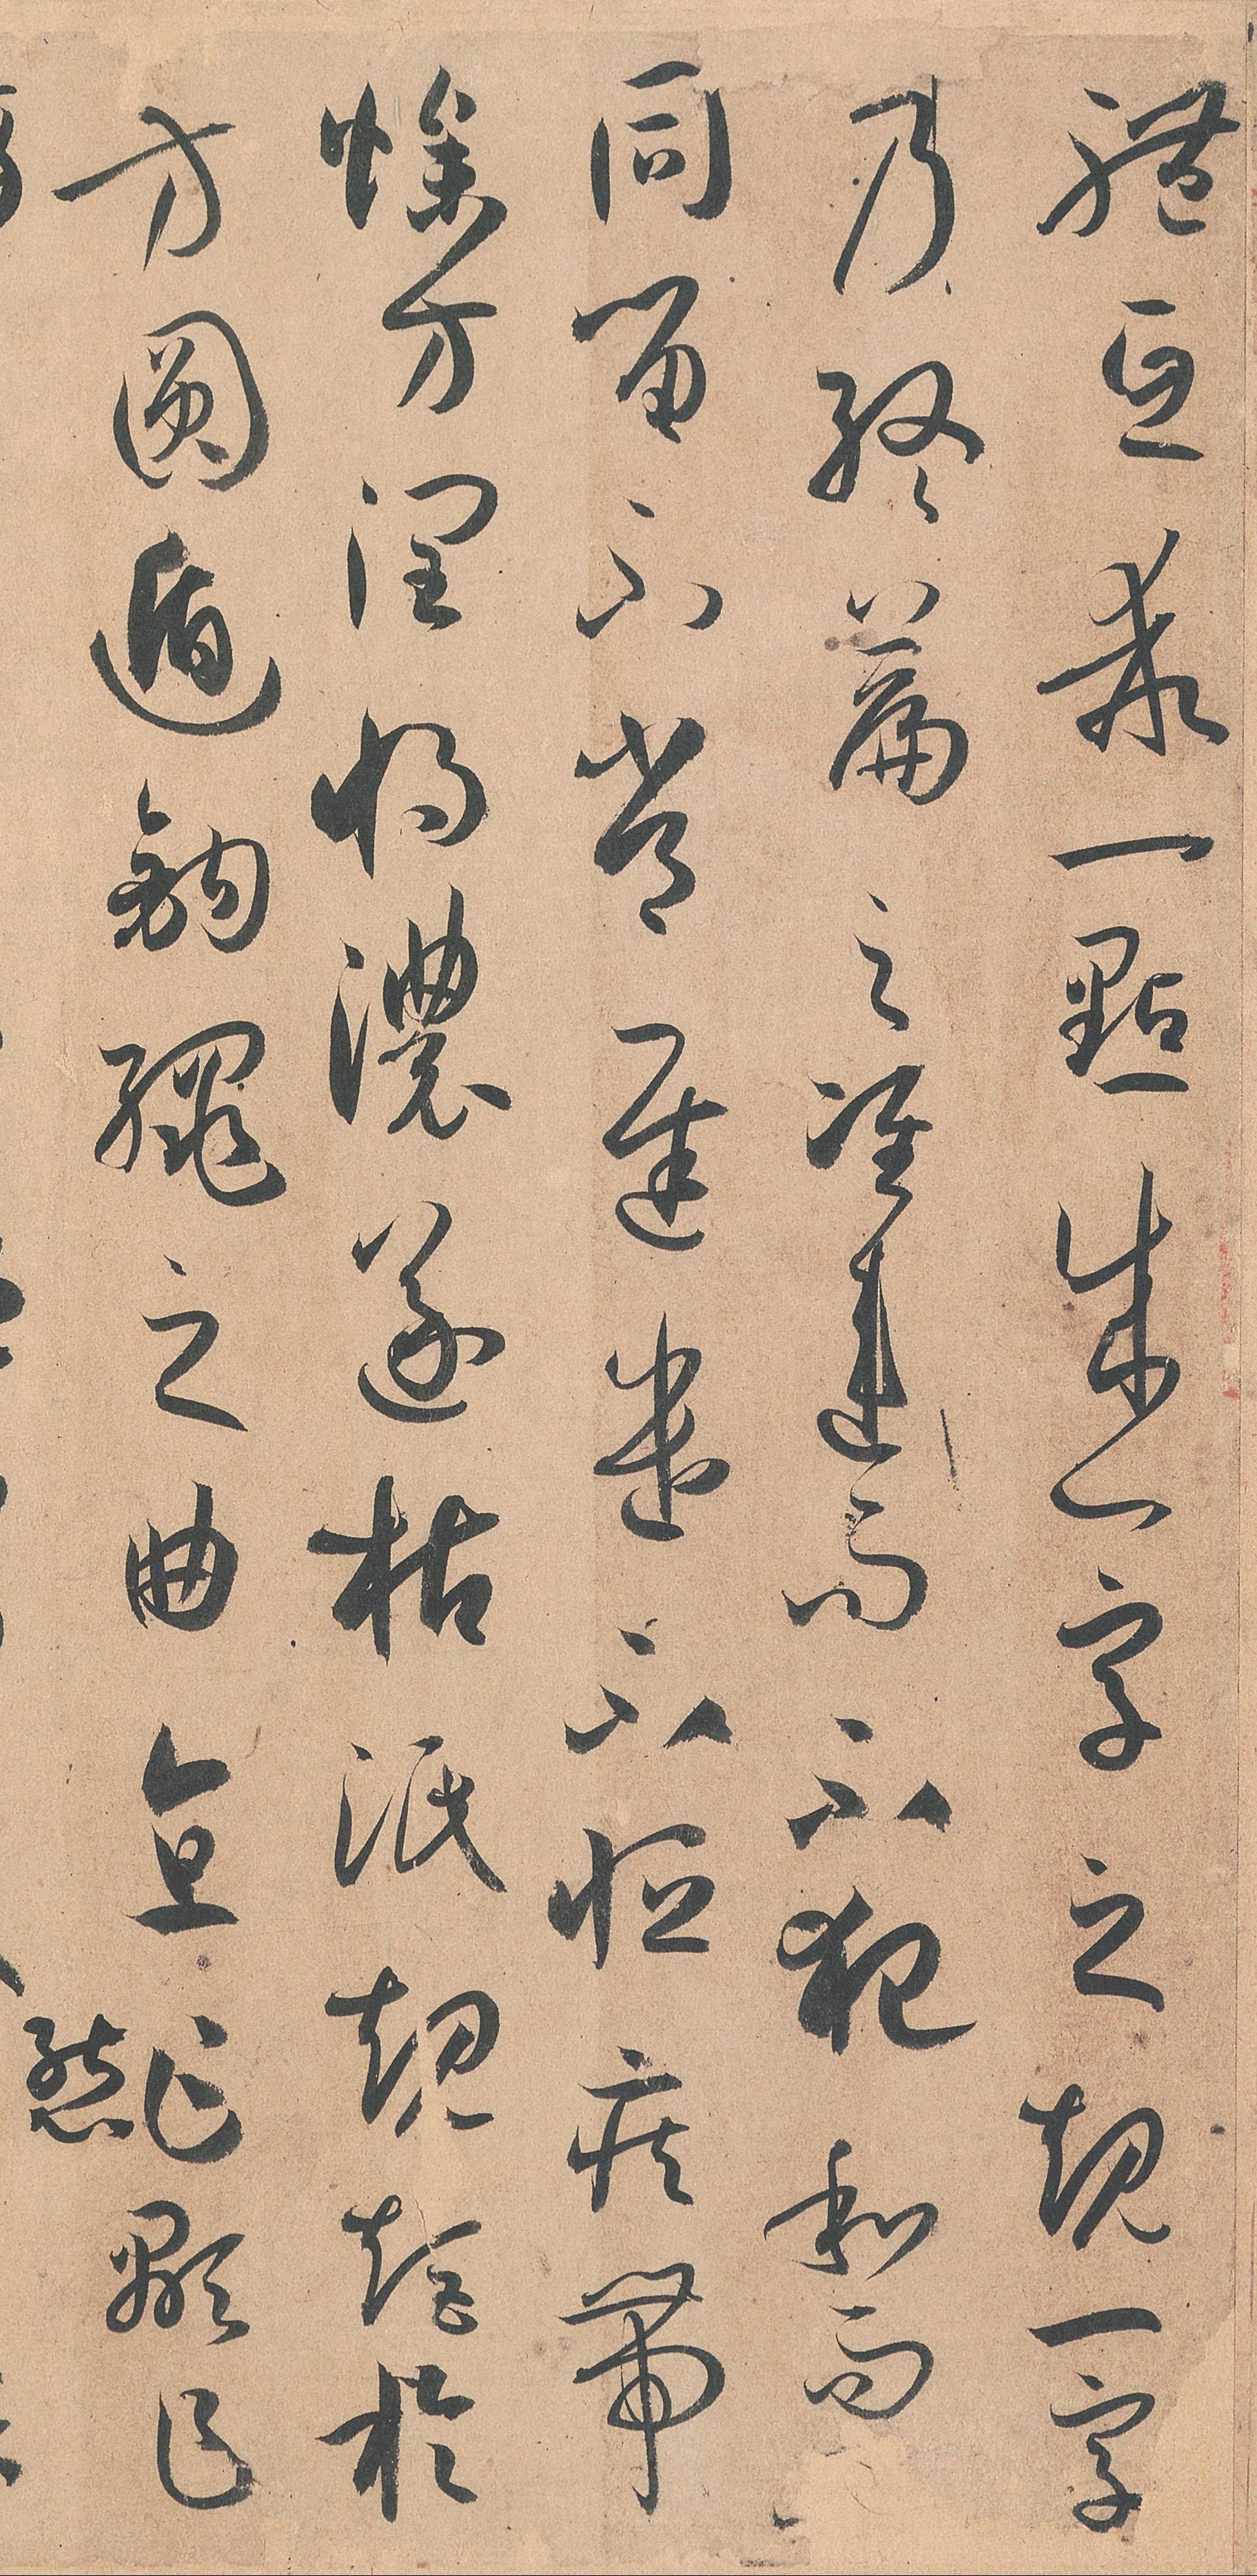 體互乖一點成一字之規一字
乃終篇之准違而不犯和而
同留不常遲遣不恒疾帶
燥方潤將濃遂枯泯規矩於
方圓遁鉤繩之曲直乍顯乍
態